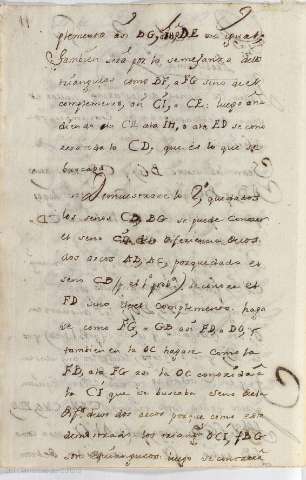 plemento así BG, a DE
Tambien será por la semejanza de los
triangulos como BF, a FG seno de el
complemento, así CI, a CE: luego aña
diendo a CE ata IH, o ata ED se cono
cera todo CD, que es lo que se
buscaba.
Demuestrase lo 2º que dados
los senos CD, BG se puede conocer
el seno diferencia de los
dos arcos AB, AC, porque dada el
seno CD se conoce el
FD seno del complemento. haga
se como FG, a GB así FD, a DO, y
tambien en la OC hagase como la
FB, ata FG así la OC conocida a
la CI que se buscaba seno de la
de los dos arcos porque como esta
demostrado los triangº OCI, FBG
son equiangulos luego se conocera